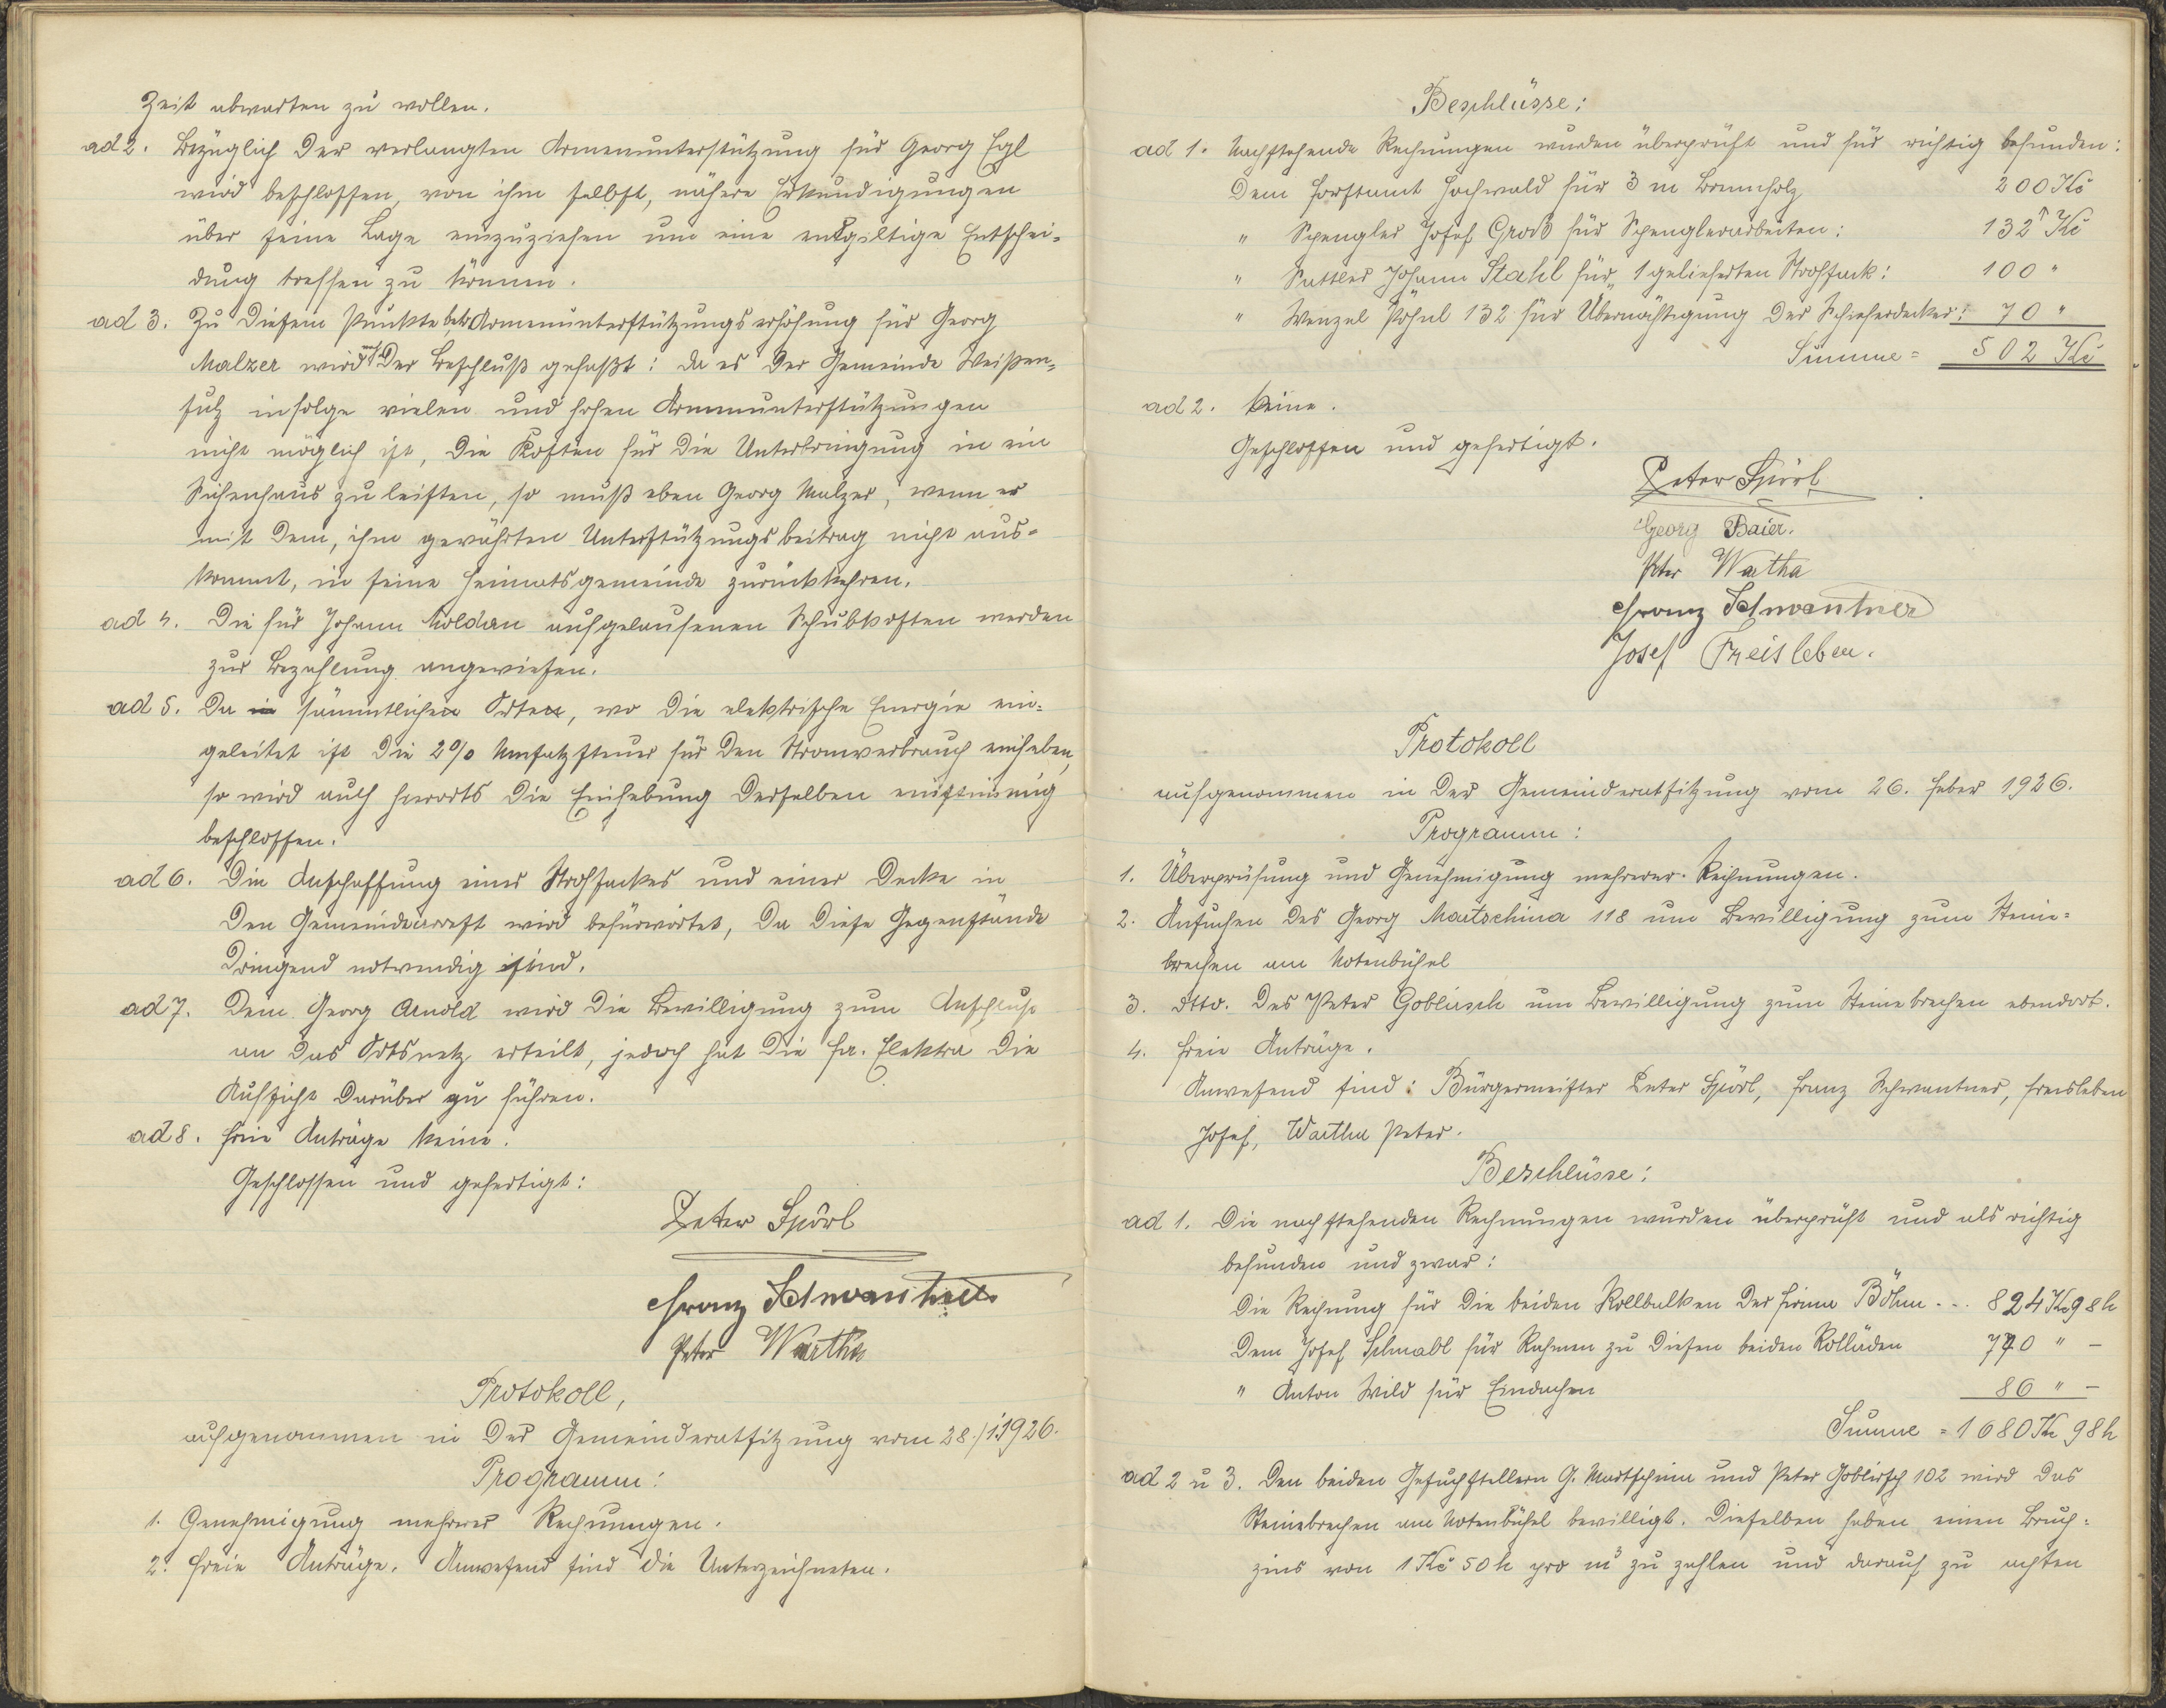 Zeit abwarten zu wollen.
ad 2. Bezüglich der verlangten Armenunterstützung für Georg Egl
wird beschlossen, von ihm selbst, nähere Erkundigungen
über seine Lage einzuziehen um eine entgiltige Entschei-
dung treffen zu können.
ad 3. Zu diesem Punkte betr. Armenunterstützungserhöhung für Georg
Malzer wird der Beschluß gefaßt: da es der Gemeinde Weißen-
sulz infolge vielen und hohen Armenunterstützungen
nicht möglich ist, die Kosten für die Unterbringung in ein
Sichenhaus zu leisten, so muß eben Georg Malzer, wenn er
mit dem, ihm gewährten Unterstützungsbeitrag nicht aus-
kommt, in seine Heimatsgemeinde zurückkehren.
ad 4. Die für Johann Moldan aufgelaufenen Schubkosten werden
zur Bezahlung angewiesen.
ad 5. Da in sämmtlichen Orten, wo die elektrische Energie ein-
geleitet ist die 2% Umsatzsteuer für den Stromverbrauch einheben,
so wird auch hierorts die Einhebung derselben einstimmig
beschlossen.
ad 6. Die Anschaffung eines Strohsackes und einer Decke in
den Gemeindearrest wird befürwortet, da diese Gegenstände
dringend notwendig sind.
ad 7. Dem Georg Arnold wird die Bewilligung zum Anschluß
an das Ortsnetz erteilt, jedoch hat die Fa. Elektra die
Aufsicht darüber zu führen.
ad 8. Freie Anträge keine.
Geschlossen und gefertigt:
Peter Spörl
Franz Schwantner
Peter Wartha
Protokoll,
aufgenommen in der Gemeinderatsitzung vom 28./1.1926.
Programm:
1. Genehmigung mehrerer Rechnungen.
2. Freie Anträge. Anwesend sind die Unterzeichneten.
Beschlüsse:
ad 1. Nachstehende Rechnungen wurden überprüft und für richtig befunden:
Dem Forstamt Hochwald für 3 m Brennholz 200 Kč
" Spengler Josef Groß für Spenglerarbeiten: 132 Kč
" Sattler Johann Stahl für 1 gelieferten Strohsack: 100 "
" Wenzel Pöhnl 132 für Übernächtigung der Schieferdecker: 70 "
Summe = 502 Kč
ad 2. Keine.
Geschlossen und gefertigt.
Peter Spörl
Georg Baier.
Peter Wartha
Franz Schwantner
Josef Freisleben.
Protokoll
aufgenommen in der Gemeinderatsitzung vom 26. Feber 1926.
Programm:
1. Überprüfung und Genehmigung mehrerer Rechnungen.
2. Ansuchen des Georg Martschina 118 um Bewilligung zum Steine-
brechen am Rotenbühel
3. dtto. des Peter Goblirsch um Bewilligung zum Steinebrechen ebendort.
4. Freie Anträge.
Anwesend sind: Bürgermeister Peter Spörl, Franz Schwantner, Freisleben
Josef, Wartha Peter.
Beschlüsse:
ad 1. Die nachstehenden Rechnungen wurden überprüft und als richtig
befunden und zwar:
Die Rechnung für die beiden Rollbalken der Firma Böhm . . . 824 Kč 98 h
Dem Josef Schmabl für Rahmen zu diesen beiden Rolläden 770 " –
" Anton Wild für Eindachen 86 " –
Summe = 1680 Kč 98 h
ad 2 u 3. Den beiden Gesuchstellern G. Martschina und Peter Goblirsch 102 wird das
Steinebrechen am Rotenbühel bewilligt. Dieselben haben einen Bruch-
zins von 1 Kč 50 h pro m³ zu zahlen und darauf zu achten